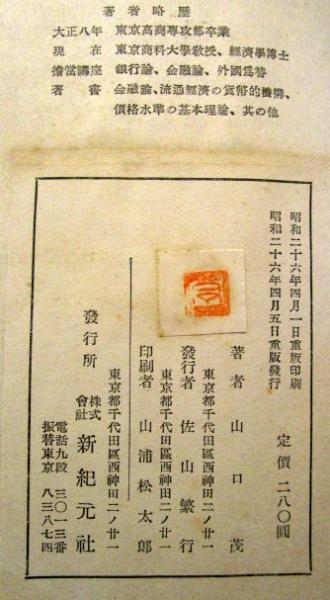 著者略歴
大正八年 東京高商專攻部卒業
現在 東京商科大學敎授、經濟學博士
擔當講座 銀行論、金融論、外國爲替
著書 金融論、流通經濟の貨幣的機構、
價格水準の基本理論、其の他
昭和二十六年四月一日重版印刷
昭和二十六年四月五日重版發行
定價 二八〇圓
著者 山口茂
東京都千代田區西神田二ノ廿一
發行者 佐山繁行
東京都千代田區西神田二ノ廿一
印刷者 山浦松太郎
東京都千代田區西神田二ノ廿一
發行所 株式會社 新紀元社
電話九段 三〇一三番
振替東京 八三八七四